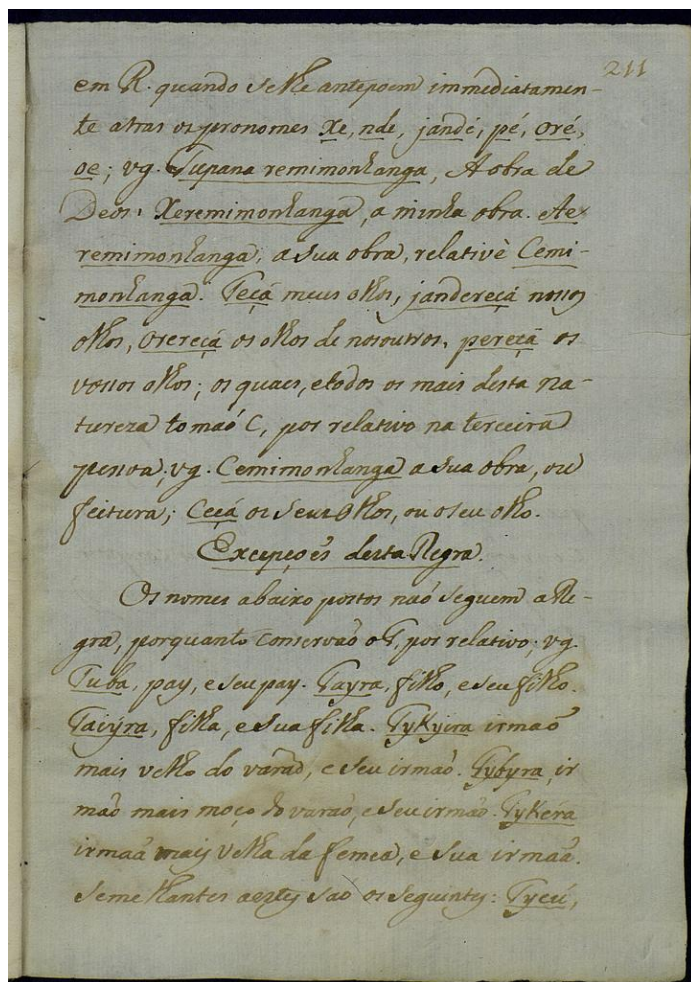 211
em R. quando se lhe antepoem immediatamen-
te atras os pronomes Xe, nde, jandé, pé, oré,
oe; vg. Tupana remimonhanga, A obra de
Deos. Xeremimonhanga, a minha obra. Ae
remimonhanga, a sua obra, relativè Cemi-
monhanga. Teçá meus olhos, jandereçá nossos
olhos, orereçá os olhos de nosoutros, pereçá os
vossos olhos; os quaes, e todos os mais desta na-
tureza tomaõ C, por relativo na terceira
pessoa; vg. Cemimonhanga a sua obra, ou
feitura; Ceçá os seus olhos, ou o seu olho.
Excepçoẽs desta Regra.
Os nomes abaixo postos naõ seguem a Re-
gra, porquanto conservaõ o T, por relativo; vg.
Tuba, pay, e seu pay. Tayra, filho, e seu filho.
Taiýra, filha, e sua filha. Tykyira irmaõ
mais velho do varaõ, e seu irmaõ. Tybyra, ir
maõ mais moço do varaõ, e seu irmaõ. Tykéra
irmaã mais velha da femea, e sua irmaã.
Semelhantes a estes saõ os seguintes: Tyeú,